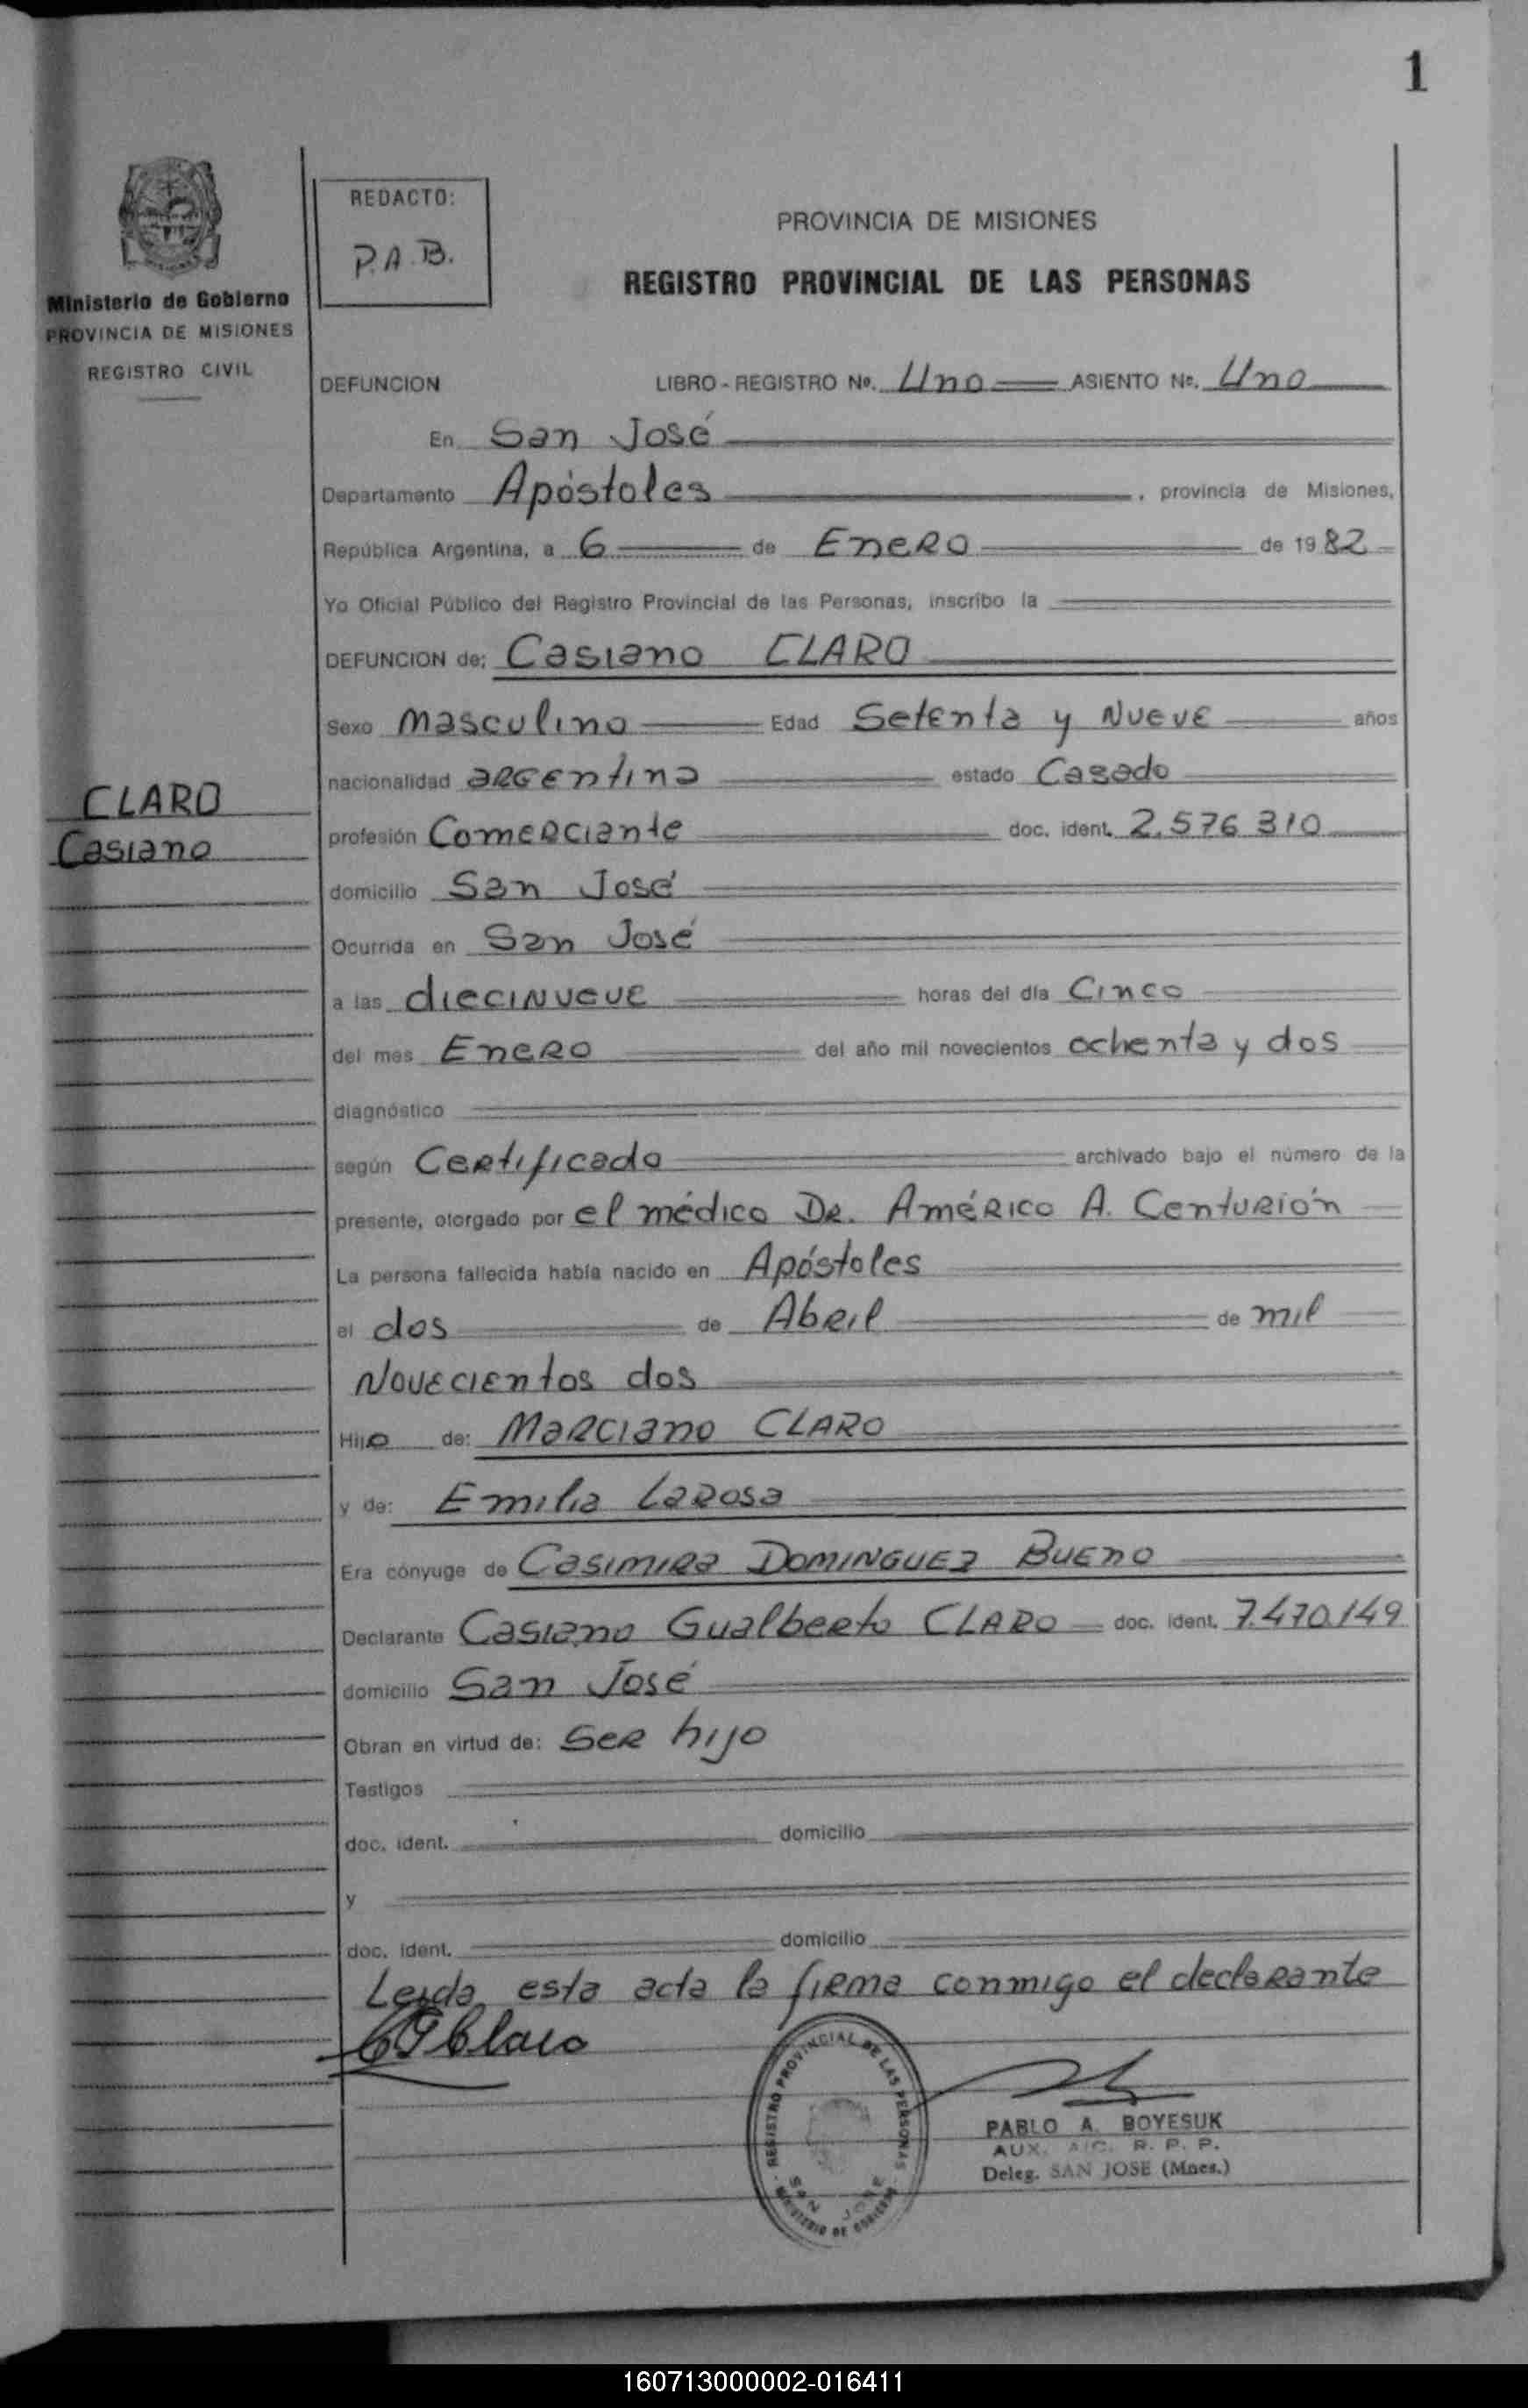 1
Ministerio de Gobierno
PROVINCIA DE MISIONES
REGISTRO CIVIL
REDACTO:
P.A.B.
PROVINCIA DE MISIONES
REGISTRO PROVINCIAL DE LAS PERSONAS
DEFUNCION LIBRO - REGISTRO No. Uno ASIENTO No. Uno
En San José
Departamento Apóstoles, provincia de Misiones,
República Argentina, a 6 de Enero de 1982
Yo Oficial Público del Registro Provincial de las Personas, inscribo la
DEFUNCION de: Casiano CLARO
Sexo masculino Edad Setenta y Nueve años
nacionalidad argentina estado Casado
CLARO
Casiano
profesión Comerciante doc. ident. 2.576 310
domicilio San José
Ocurrida en San José
a las diecinueve horas del día Cinco
del mes Enero del año mil novecientos ochenta y dos
diagnóstico
según Certificado archivado bajo el número de la
presente, otorgado por el médico Dr. Américo A. Centurión
La persona fallecida había nacido en Apóstoles
el dos de Abril de mil
Novecientos dos
Hijo de: Marciano CLARO
y de: Emilia Larosa
Era cónyuge de Casimira DOMINGUEZ BUENO
Declarante Casiano Gualberto CLARO doc. ident. 7.470.149
domicilio San José
Obran en virtud de: Ser hijo
Testigos
doc. ident. domicilio
y
doc. ident. domicilio
Leida esta acta la firma conmigo el declarante
CGClaro
REGISTRO PROVINCIAL DE LAS PERSONAS
SAN JOSE
MINISTERIO DE GOBIERNO
PABLO A. BOYESUK
AUX. R. P. P.
Deleg. SAN JOSE (Mnes.)
160713000002-016411